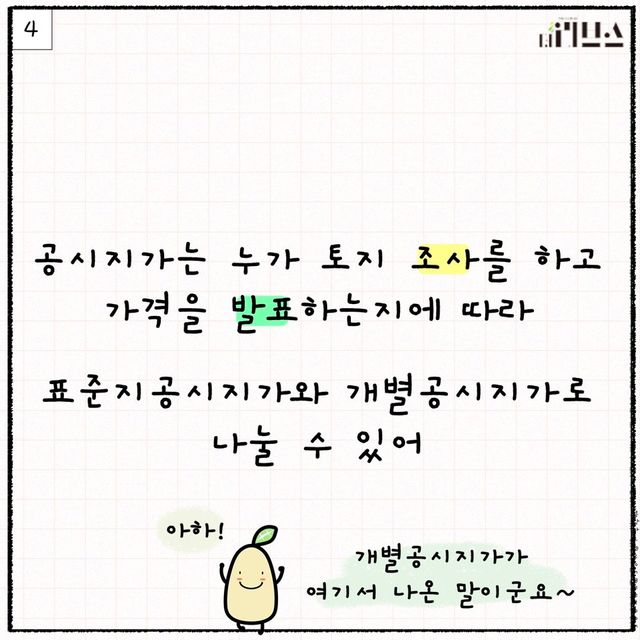 4
공시지가는 누가 토지 조사를 하고
가격을 발표하는지에 따라
표준지공시지가와 개별공시지가로
나눌 수 있어
아하!
개별공시지가가
여기서 나온 말이군요~